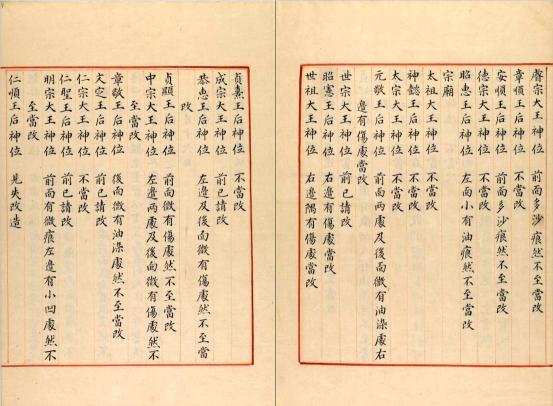 睿宗大王神位 前面多沙痕然不至當改
章順王后神位 不當改
安順王后神位 前面多沙痕然不至當改
德宗大王神位 不當改
昭惠王后神位 左面小有油痕然不至當改
宗廟
太祖大王神位 不當改
神懿王后神位 不當改
太宗大王神位 不當改
元敬王后神位 前面兩處及後面微有油染處右
邊有傷處當改
世宗大王神位 前已請改
昭憲王后神位 右邊有傷處當改
世祖大王神位 右邊隅有傷處當改
貞熹王后神位 不當改
成宗大王神位 前已請改
恭惠王后神位 左邊及後面微有傷處然不至當
改
貞顯王后神位 前面微有傷處然不至當改
中宗大王神位 左邊兩處及後面微有傷處然不
至當改
章敬王后神位 後面微有油染處然不至當改
文定王后神位 前已請改
仁宗大王神位 不當改
仁聖王后神位 前已請改
明宗大王神位 前面有微痕左邊有小凹處然不
至當改
仁順王后神位 見失改造